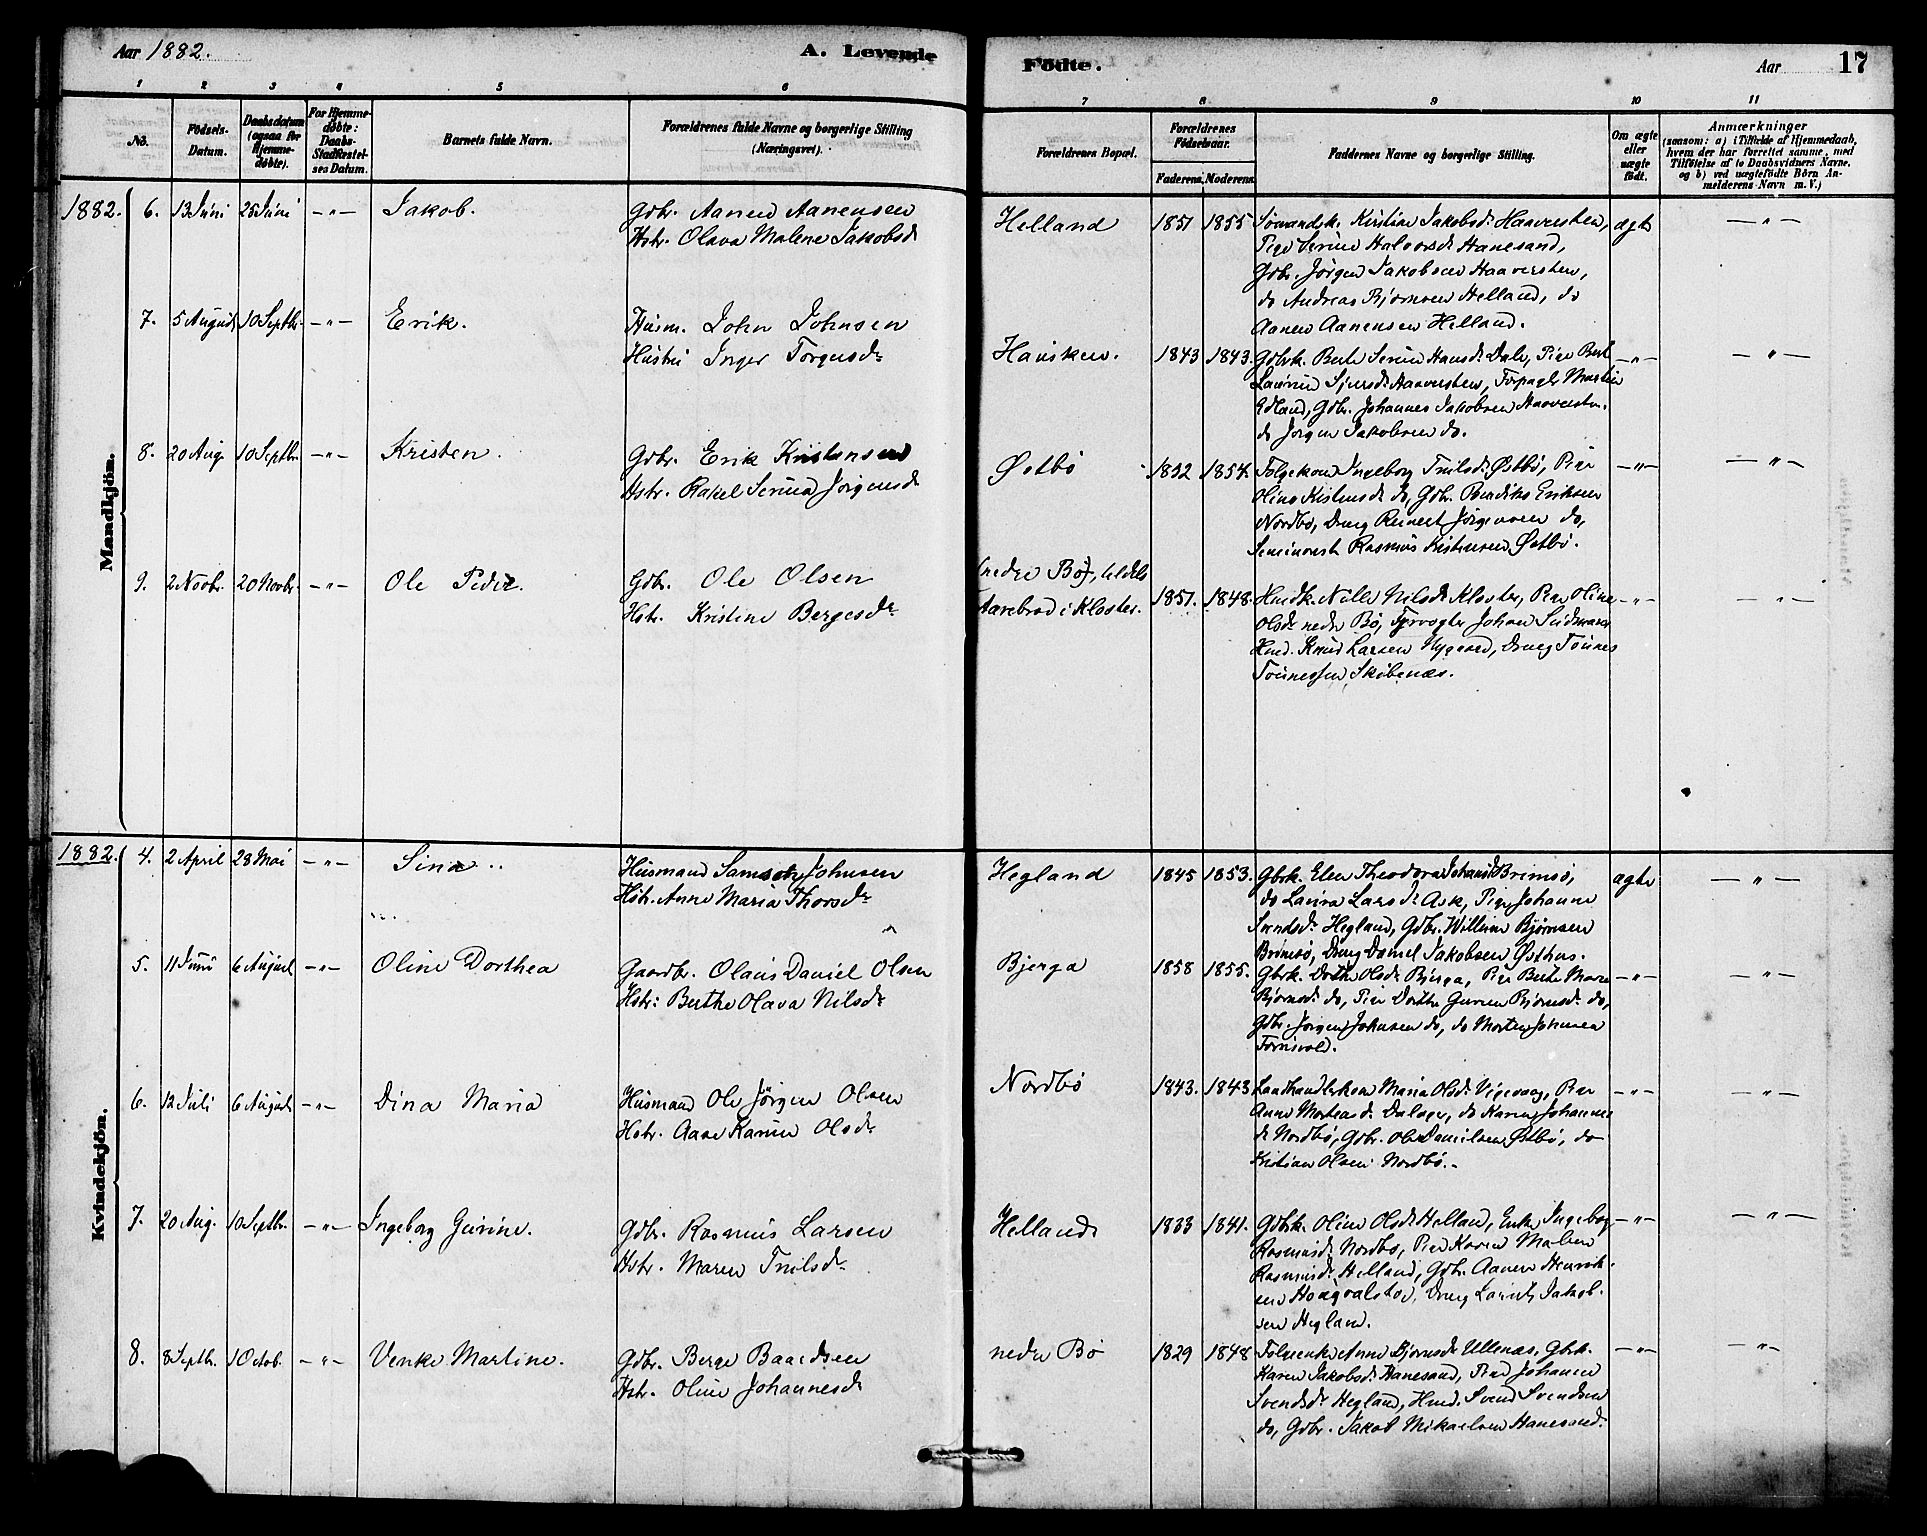 Aar 1882. A. Levende Födte. Aar 17
1 2 3 4 5 6 7 8 9 10 11
No.
Födsels-
Datum.
Daabsdatum
(ogsaa for
Hjemme-
döbte).
For Hjemme-
döbte:
Daabs-
Stadfæstel-
ses Datum.
Barnets fulde Navn.
Forældrenes fulde Navne og borgerlige Stilling
(Næringsvei).
Forældrenes Bopæl.
Forældrenes
Födselsaar.
Faderens. Moderens.
Faddernes Navne og borgerlige Stilling.
Om ægte
eller
uægte
födt.
Anmærkninger
(saasom: a) i Tilfælde af Hjemmedaab,
hvem der har forrettet samme, med
Tilföielse af to Daabsvidners Navne,
og b) ved uægtefödte Börn An-
melderens Navn m. V.)
Mandkjön.
1882. 6. 13 Juni 25 Juni —"— Jakob.
Gdbr. Aanen Aanensen
Hstr. Olava Malene Jakobsdr
Helland 1851 1855
Sömandsk. Kristine Jakobsdr Haaversten,
Pige Serine Halvorsdr Hanesand,
Gdbr. Jörgen Jakobsen Haaversten,
do Andreas Bjørnsen Helland, do
Aanen Aanensen Helland.
ægte —"—
7. 5 August 10 Septbr. —"— Erik.
Husm. John Johnsen
Hustru Inger Torgersdr
Hausken. 1843 1843.
Gdbrk. Berte Serine Hansdr Dale, Pige Berte
Laurine Sjursdr Haaversten, Forpagter Martin
Edland, Gdbr. Johannes Jakobsen Haaversten.
do Jørgen Jakobsen do.
—"— —"—
8. 20 Aug. 10 Septbr. —"— Kristen.
Gdbr. Erik Kristensen
Hstr. Rakel Serina Jørgensdr
Østbø 1852 1854.
Folgekone Ingeborg Truilsdr Østbø, Pige
Oline Kristensdr do, Gdbr. Bendiks Eriksen
Nordbø, Dreng Reinert Jørgensen do,
Seminarist Rasmus Kristensen Østbø.
—"— —"—
9. 2 Novbr. 20 Novbr. —"— Ole Peder.
Gdbr. Ole Olsen
Hstr. Kristine Bergesdr
(nedre Bø),
i Kloster. 1851. 1848.
Husmdk. Nille Nilsdr Kloster, Pige Oline
Olsdr nedre Bø, Fyrvogter Johan
Husmd. Knud Larsen Nygaard, Dreng Tønnes
Tønnessen Skibenæs.
—"— —"—
Kvindekjön.
1882. 4. 2 April 28 Mai —"— Sina
Husmand Samson Johnsen
Hstr. Anne Maria Thorsdr
Hegland 1845 1853.
Gbrk. Elen Theodora Johansdr Brimsø,
do Laura Larsdr Ask, Pige Johanne
Svendsdr Hegland, Gdbr. William Bjørnsen
Brimsø, Dreng Daniel Jakobsen Østhus.
ægte —"—
5. 11 Juni 6 August —"— Oline Dorthea
Gaardbr. Olaus Daniel Olsen
Hstr: Berthe Olava Nilsdr
Bjerga 1858 1855.
Gbrk. Dorthe Olsdr Bjerga, Pige Berte Maria
Bjørnsdr do, Pige Dorthe Gurine Bjørnsdr do,
Gdbr. Jørgen Johnsen do, do Morten Johnsen
—"— —"—
6. 12 Juli 6 August —"— Dina Maria
Husmand Ole Jørgen Olsen
Hstr. Aase Karine Olsdr
Nordbø 1843. 1843
Landhandlerkone Maria Olsdr Vigevaag, Pige
Anne Mortensdr Dalager, do Karen Johannes-
dr Nordbø, Gdbr. Ole Danielsen Østbø, do
Kristian Olsen Nordbø.
—"— —"—
7. 20 Aug. 10 Septbr. —"— Ingeborg Gurine.
Gdbr. Rasmus Larsen
Hstr. Maren Truilsdr
Helland 1833 1841.
Gdbrk. Oline Olsdr Helland, Enke Ingeborg
Rasmusdr Nordbø, Pige Karen Malene
Rasmusdr Helland, Gdbr. Aanen Henrik-
sen Haagvalstad, Dreng Laurits Jakob-
sen Hegland.
—"— —"—
8. 8 Septbr. 1 Octob. —"— Venke Martine.
Gdbr. Berge Baardsen
Hstr. Oline Johannesdr
nedre Bø 1829 1848
Folgeenke Anne Bjørnsdr Ullenæs, Gbrk.
Karen Jakobsdr Hanesand, Pige Johanne
Svendsdr Hegland, Husmd. Svend Svendsen
do, Gdbr. Jakob Mikaelsen Hanesand.
—"— —"—